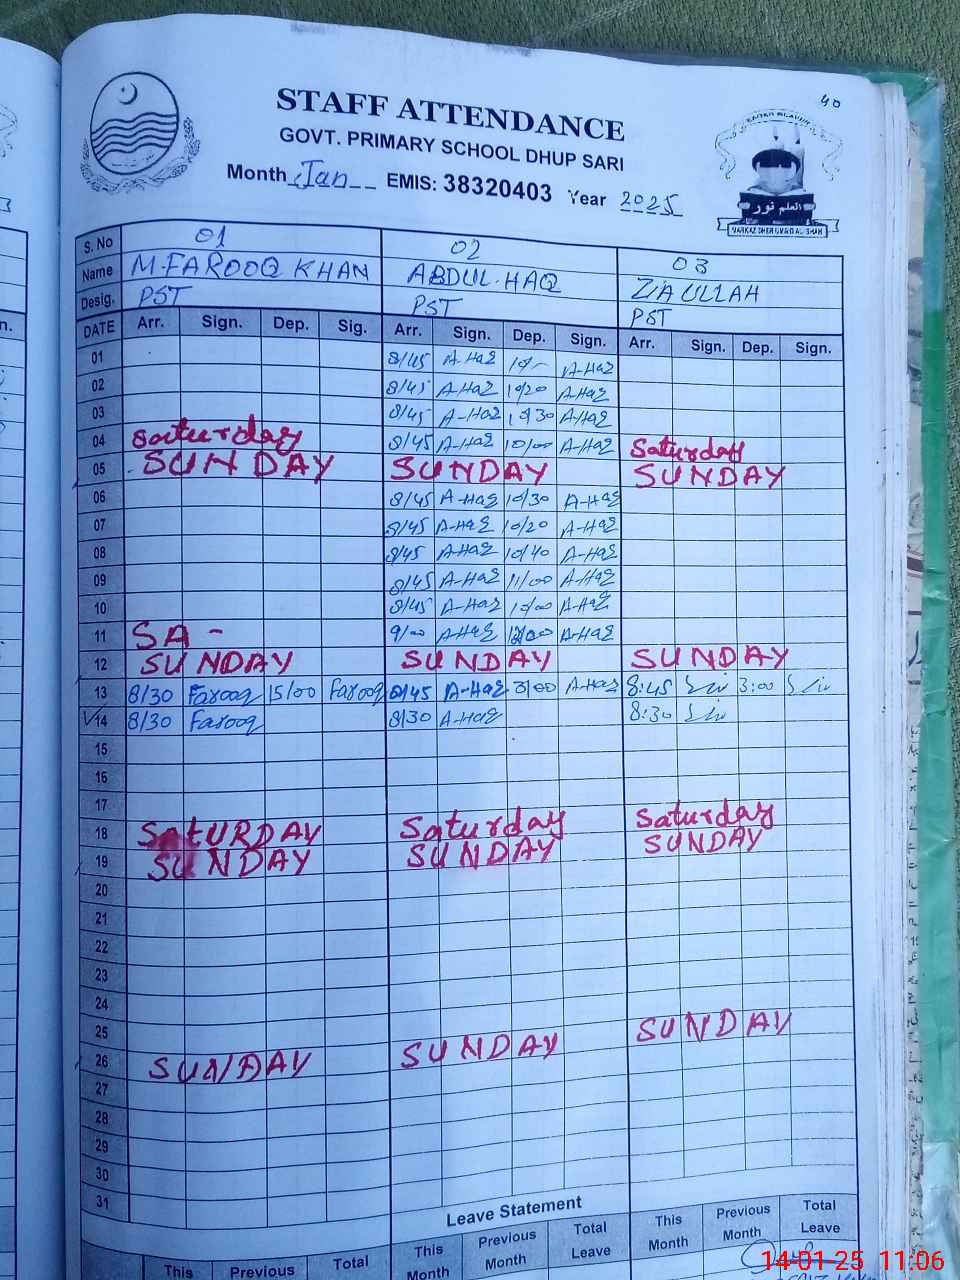 40
STAFF ATTENDANCE
GOVT. PRIMARY SCHOOL DHUP SARI
Month Jan EMIS: 38320403 Year 2025
العلم نور
S. No 01 02 03
Name M.FAROOQ KHAN ABDUL.HAQ ZIAULLAH
Desig. PST PST PST
DATE Arr. Sign. Dep. Sig. Arr. Sign. Dep. Sign. Arr. Sign. Dep. Sign.
01 8/45 A-Haq 10/- A-Haq
02 8/45 A-Haq 10/20 A-Haq
03 8/45 A-Haq 10/30 A-Haq
04 Saturday 8/45 A-Haq 10/00 A-Haq Saturday
05 SUNDAY SUNDAY SUNDAY
06 8/45 A-Haq 10/30 A-Haq
07 8/45 A-Haq 10/20 A-Haq
08 8/45 A-Haq 10/40 A-Haq
09 8/45 A-Haq 11/00 A-Haq
10 8/45 A-Haq 10/00 A-Haq
11 SA - 9/00 A-Haq A-Haq
12 SUNDAY SUNDAY SUNDAY
13 8/30 Farooq 15/00 Farooq 8/45 A-Haq 3/00 A-Haq 8:45 3:00
14 8/30 Farooq 8/30 A-Haq 8:30
15
16
17
18 SatURDAY Saturday Saturday
19 SUNDAY SUNDAY SUNDAY
20
21
22
23
24
25
26 SUNDAY SUNDAY SUNDAY
27
28
29
30
31
Leave Statement
This Previous Total This Month Previous Month Total Leave This Month Previous Month Total Leave
14-01-25 11:06